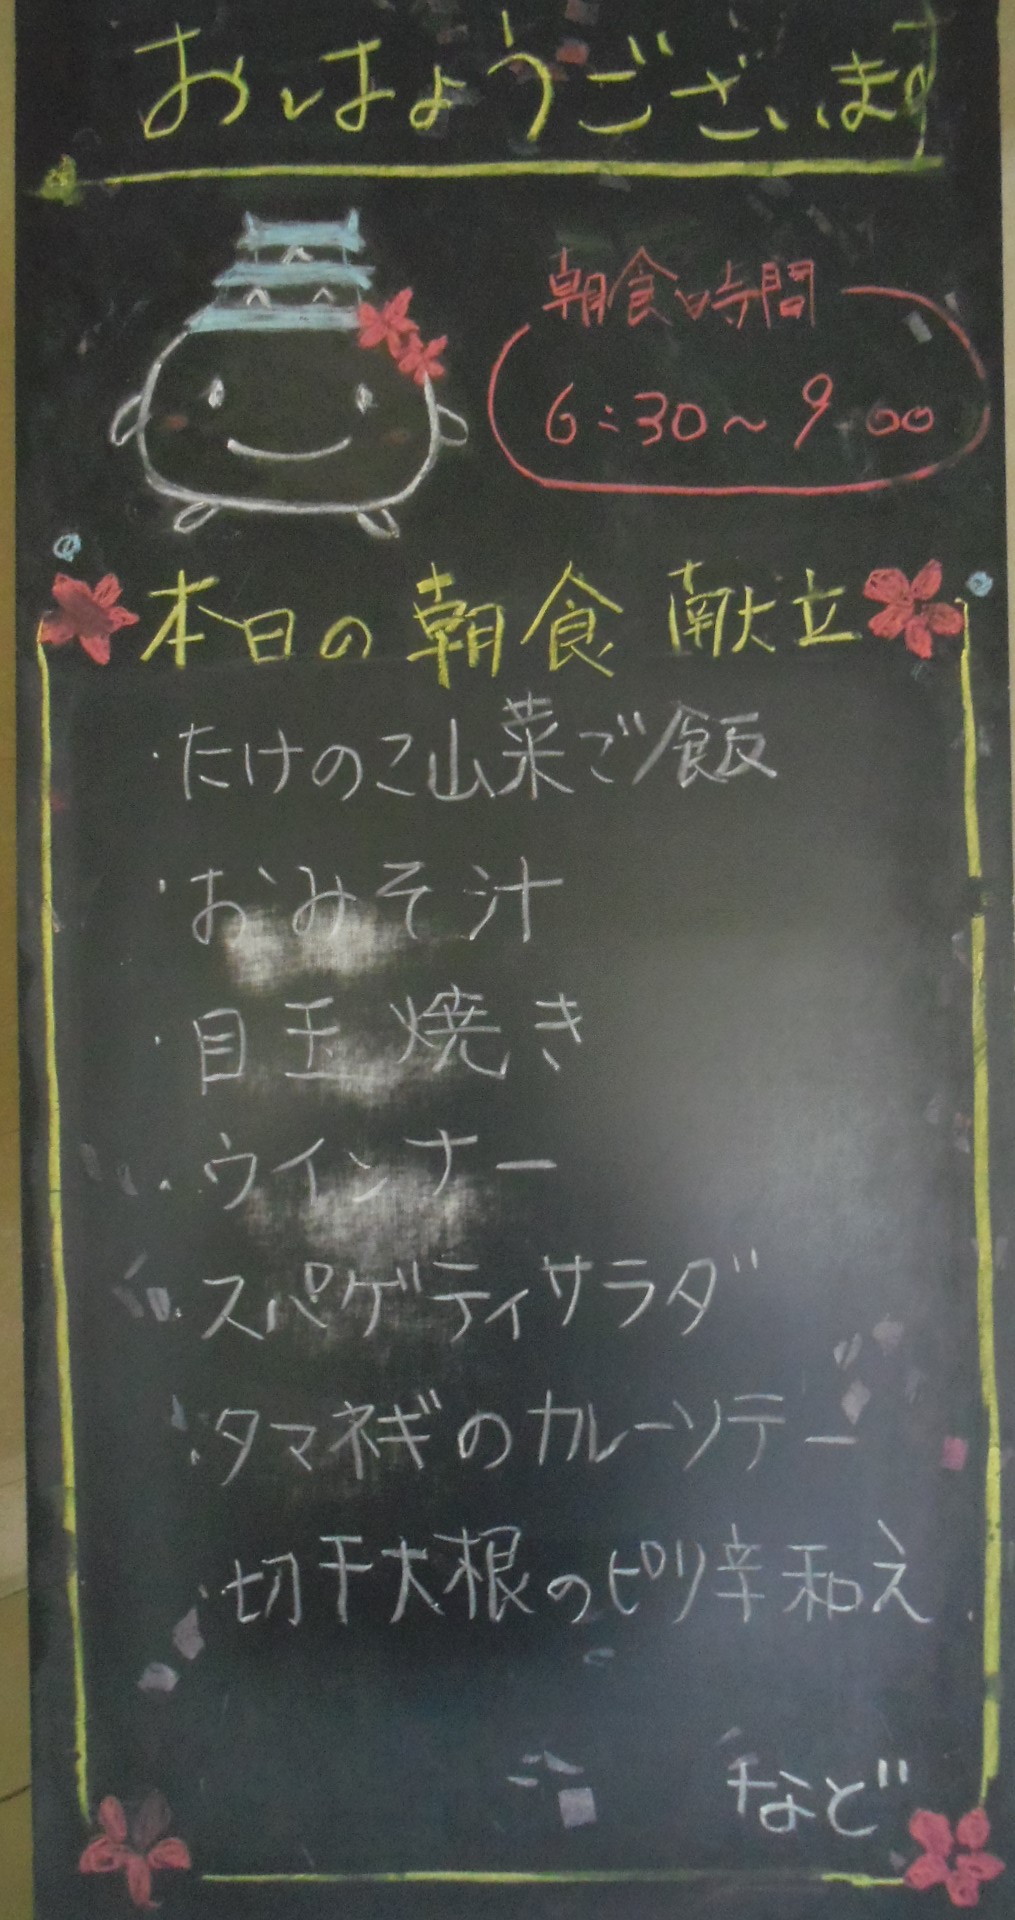 おはようございます
朝食時間
6:30~9:00
本日の朝食献立
・たけのこ山菜ご飯
・おみそ汁
・目玉焼き
・ウインナー
・スパゲティサラダ
・タマネギのカルーソテー
・切干大根のピリ辛和え
など